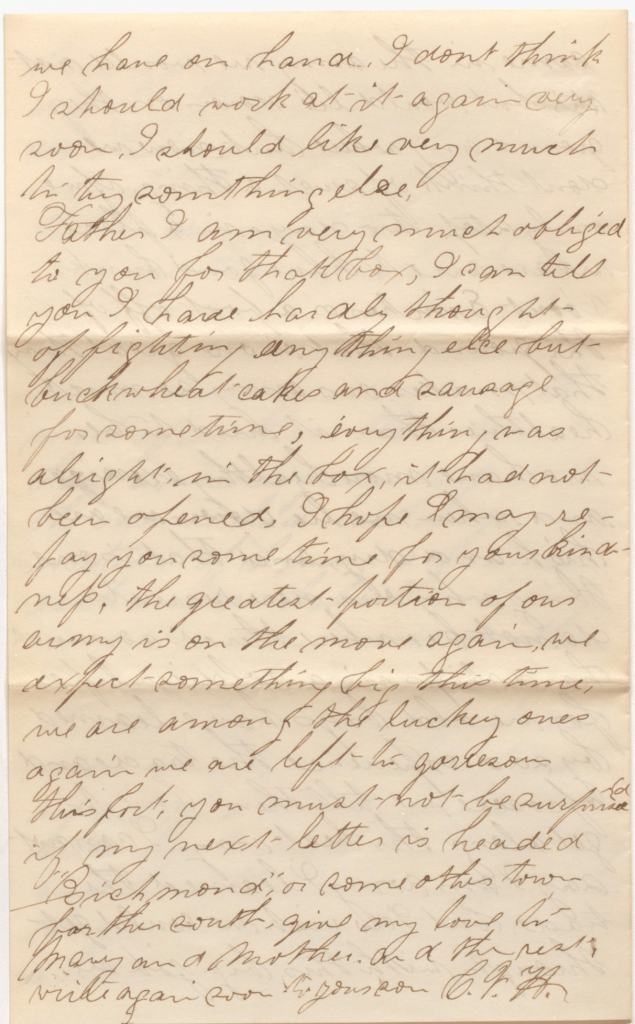 we have on hand. I dont think
I should work at it again very
soon, I should like very much
to try something else.
Father I am very much obliged
to you for that box, I can tell
you I have hardly thought
of fighting anything else but
buckwheat cakes and sausage
for sometime, evrything was
alright in the box, it had not
been opened, I hope I may re-
pay you some time for your kind-
ness, the greatest portion of our
army is on the move again, we
expect something big this time,
we are among the luckey ones
again we are left to garreson
this fort, you must not be surprised
if my next letter is headed
"Richmond", or some other town
farther south, give my love to
Mary and Mother. and the rest,
write again soon to your son C. F. H.